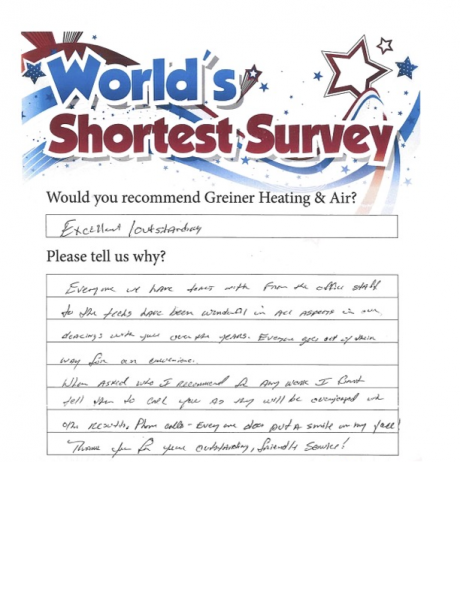 World's
Shortest Survey
Would you recommend Greiner Heating & Air?
Excellent / outstanding
Please tell us why?
Everyone we have with From the office staff
to the techs have been wonderful in all aspects in our
dealings with you over the years. Everyone goes out of their
way for an
When asked who I recommend for any work I
tell them to call you as they will be overjoyed
the results. Phone calls - Everyone does put a smile on my face!
Thank you for your outstanding, friendly service!